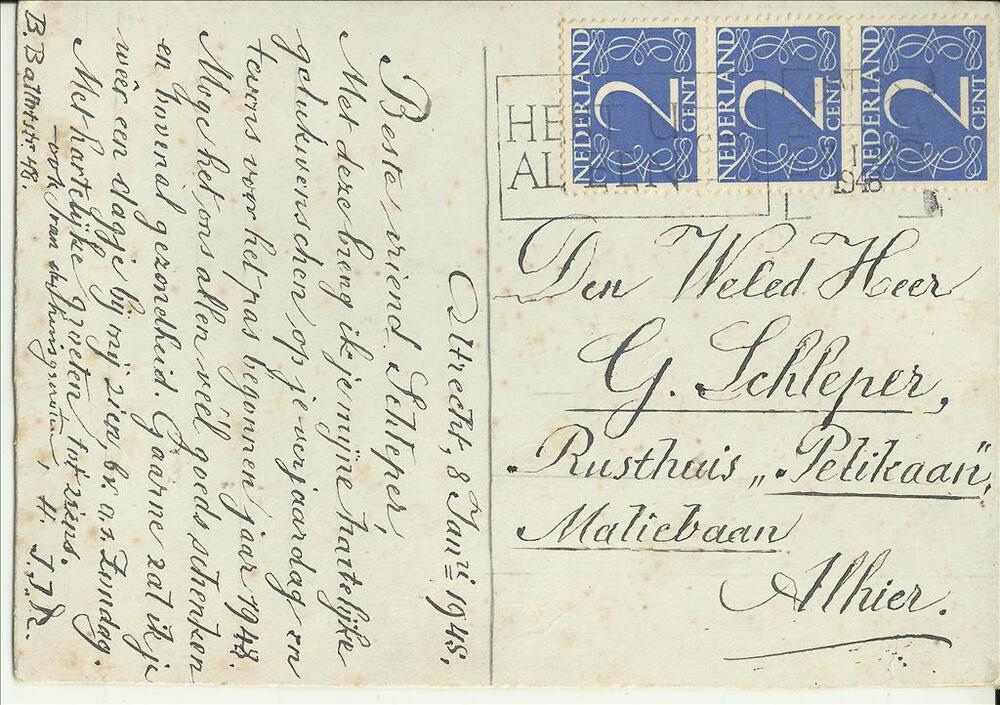 Utrecht, 8 Januari 1948.
Beste vriend Schleper,
Met deze breng ik je mijne hartelijke
gelukwenschen op je verjaardag en
tevens voor het pas begonnen jaar 1948.
Moge het ons allen véél goeds schenken
en bovenal gezondheid. Gaarne zal ik je
wêer een dagje bij mij zien, bv a.s. Zondag.
Met hartelijke groeten, tot ziens.
— ook van de
B. 48.
NEDERLAND 2 CENT
NEDERLAND 2 CENT
NEDERLAND 2 CENT
HE U
AL EEN
1948
Den Weled Heer
G. Schleper,
Rusthuis „Pelikaan",
Maliebaan
Alhier.